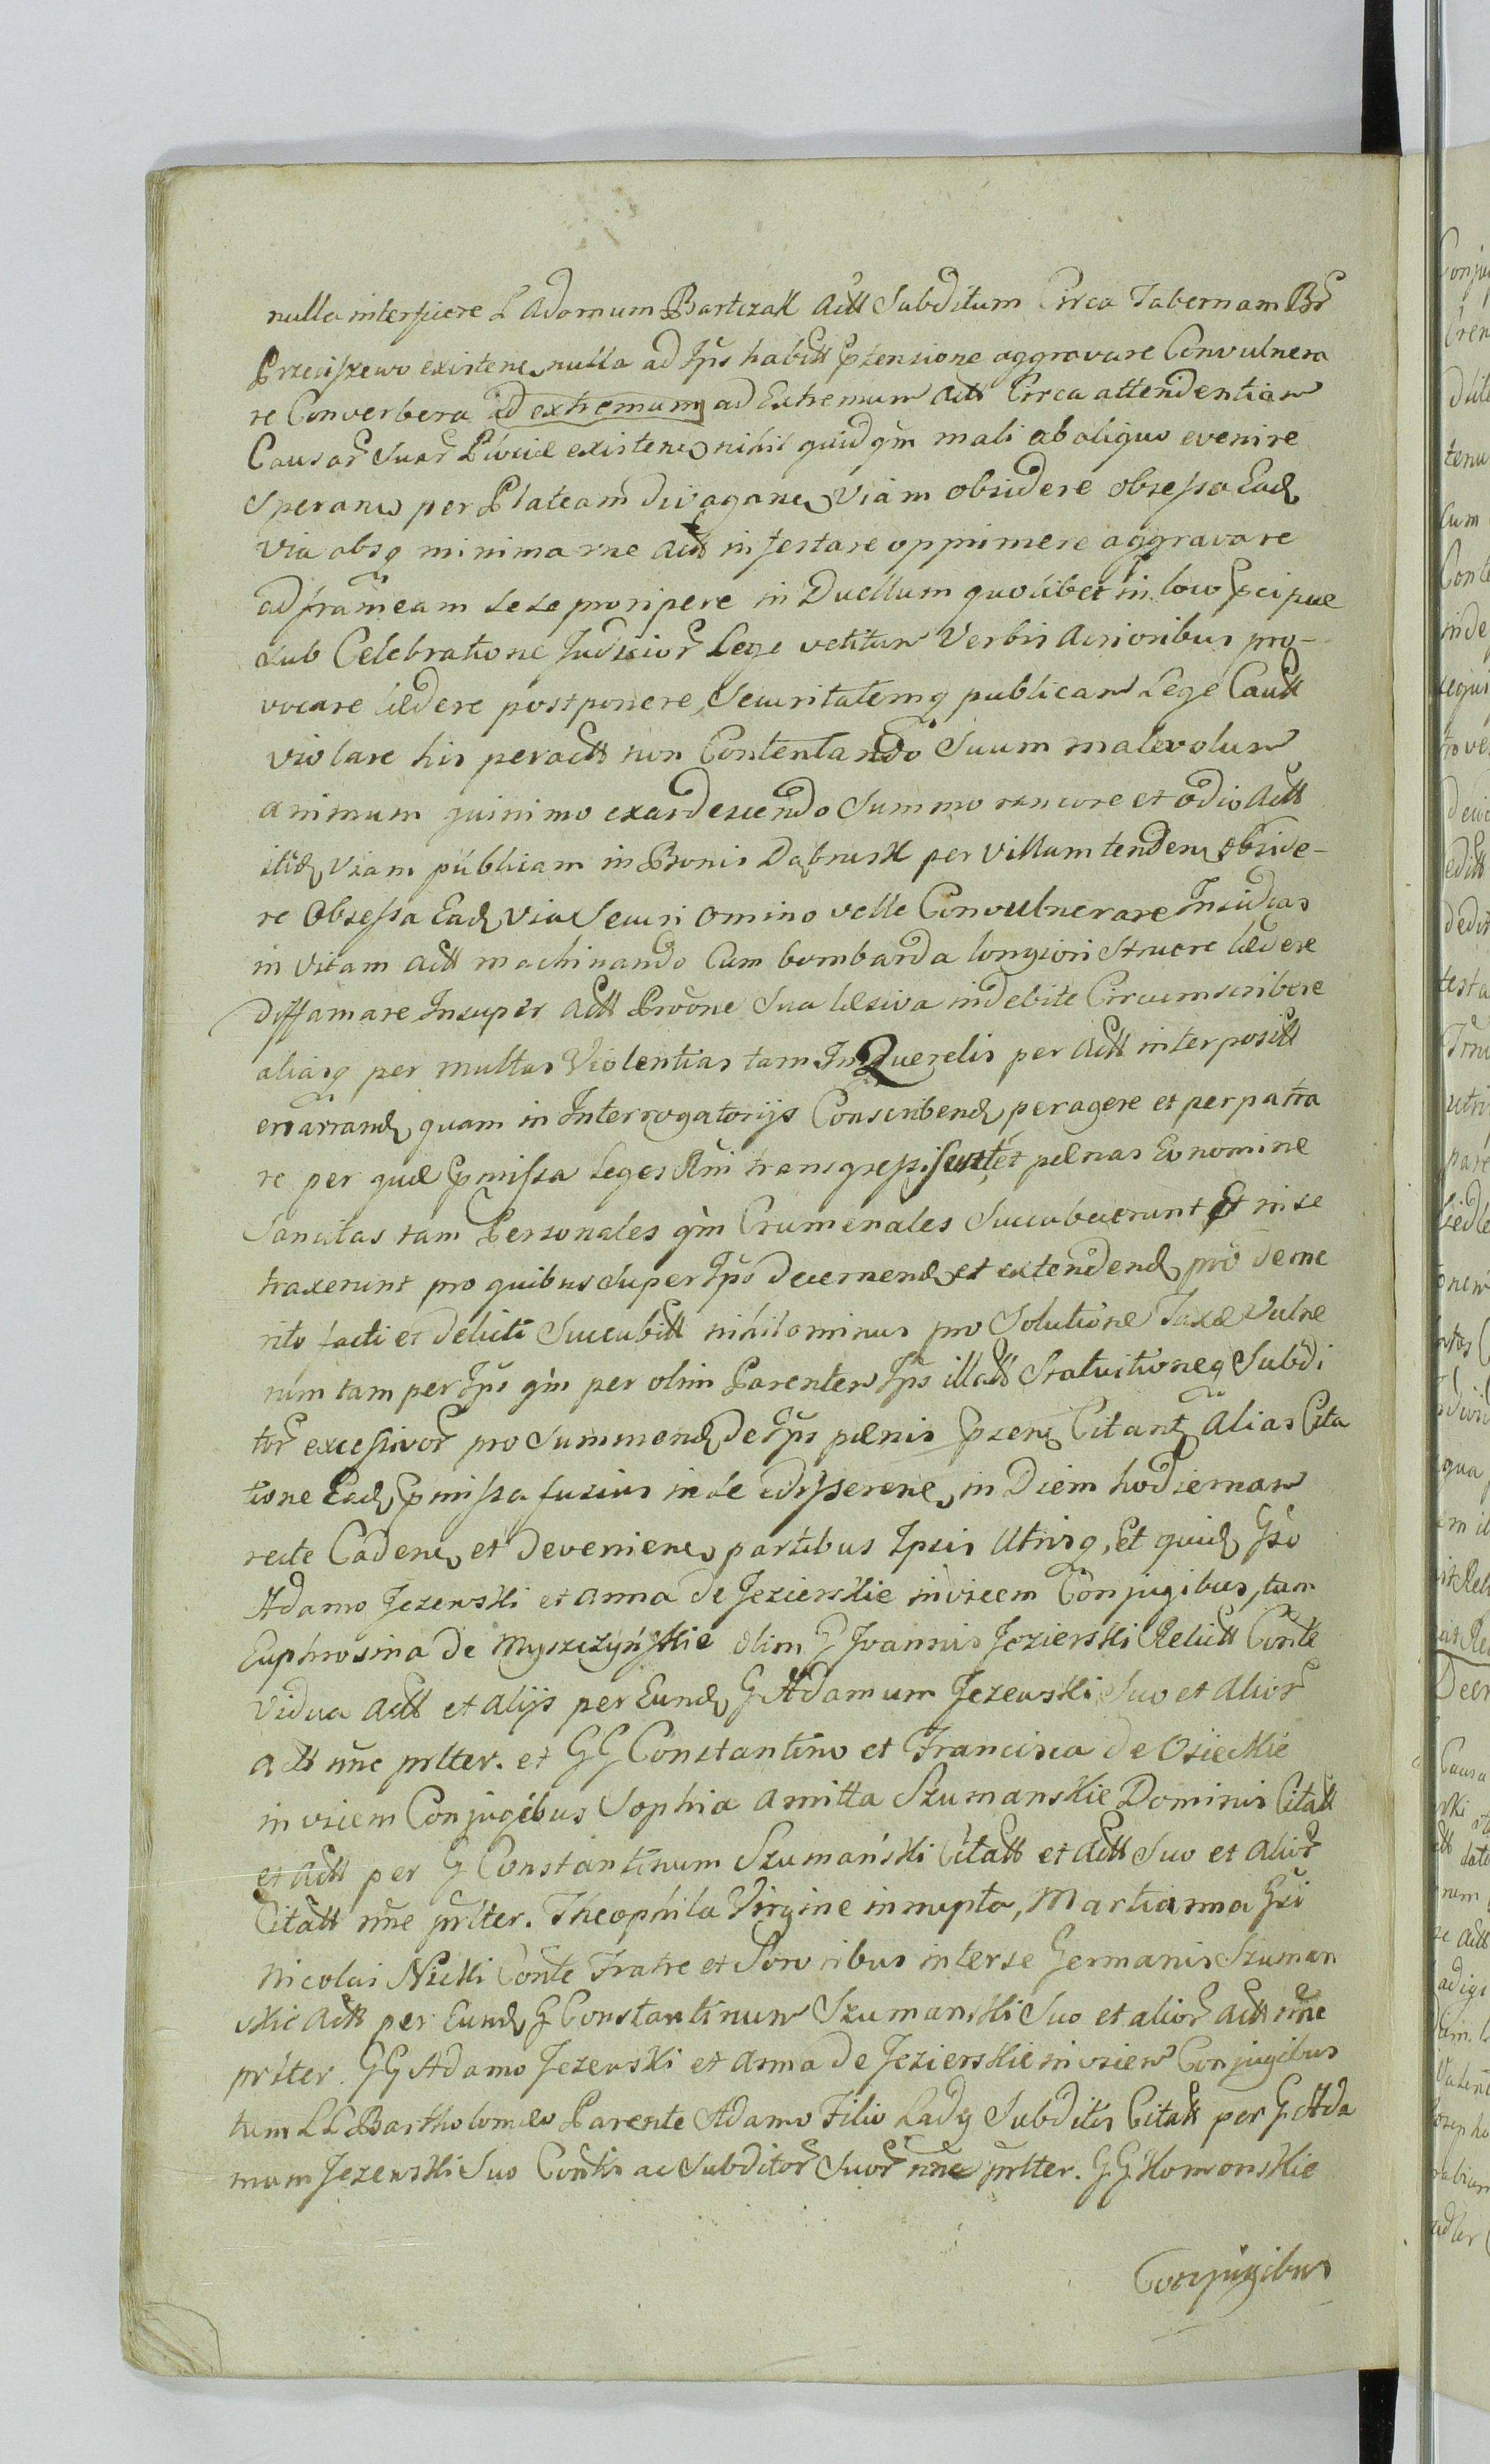 nulla interficere L Adamum Bartczak Act Subditum Circa Tabernam Br
Przeciszewo existen nulla ad Ips habitt Ptensione aggravare Convulnera
re Converbera ad extremum ad Extremum Act Circa attendentiam
Causar Suar Plociae existen nihil quidqm mali ab aliquo evenire
Speran per Plateam divagan Viam obsidere obsessa Ead
via absq minima rne Act infestare opprimere aggravare
ad frameam sese proripere in Duellum quolibet in loco Pcipue
sub Celebratione Judicior Lege vetitum Verbis Acrioribus pro-
vocare laedere postponere, Securitatemq publicam Lege Cautt
violare his peractt non Contentando Suum malevolum
animum quinimo exardescendo Summo rancore et odio Actt
itid Viam publicam in Bonis Dąbrusk per Villam tenden obside-
re Obsessa Ead Via Securi omino velle Convulnerare Insidias
in Vitam Actt machinando Cum bombarda longiori Struere laedere
diffamare Insuper Actt Proone Sua laesiva indebite Circumscribere
aliasq per multas Violentias tam In Querelis per Actt interpositt
enarrand quam in Interrogatorijs Conscribend peragere et perpatra
re per quae Pmissa Leges Rni transgressi sunt et paenas Eo nomine
Sancitas tam Personales qm Crumenales Succubuerunt Et in se
traxerunt pro quibus Super Ips decernend et extendend pro deme
rito facti et delicti Succubitt nihilominus pro Solutione Taxae Vulne
rum tam per Ips qm per olim Parentem Ips illatt Statuitioneq Subdi
tor excessivor pro Summend de Ips paenis Pzen Citant Alias Cita
tione Ead Pmissa fusius in se disseren, in Diem hodiernam
recte Caden et devenien partibus Ipsis Utrisq, Et quid Gso
Adamo Jezewski et Anna de Jezierskie invicem Conjugibus, tum
Euphrosina de Myszczyńskie olim G Joannis Jezierski Relictt Conte
Vidua Actt et Alijs per Eund G Adamum Jezewski Suo et Alior
Actt nne prltter. et GG Constantino et Francisca de Osieckie
invicem Conjugibus Sophia Amitta Szumanskie Dominis Citatt
et Actt per G Constantinum Szumański Citatt et Actt Suo et Alior
Citatt nne prltter. Theophila Virgine innupta, Martianna Gsi
Nicolai Nicki Conte Fratre et Sororibus inter se Germanis Szuman
skie Actt per Eund G Constantinum Szumanski Suo et alior Actt nne
prltter. GG Adamo Jezewski et Anna de Jezierskie invicem Conjugibus
tum LL Bartholomeo Parente Adamo Filio Lady Subditis Citatt per G Ada
mum Jezewski Suo Contis ac Subditor Suor nne prltter. GG Homonskie
Conjugibus